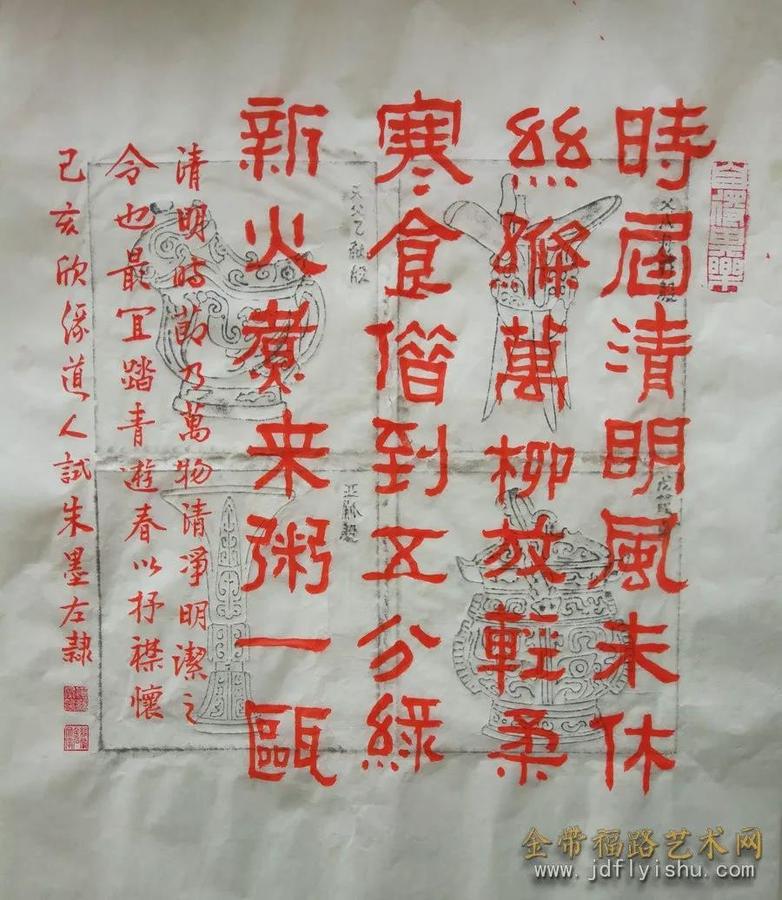 時屆清明風未休
絲絲萬柳放輕柔
寒食偕到五分綠
新火煮來粥一甌
清明時節乃萬物清凈明潔之
令也最宜踏青遊春以抒襟懷
己亥欣缘道人試朱墨左隸
金带福路艺术网
www.jdflyishu.com